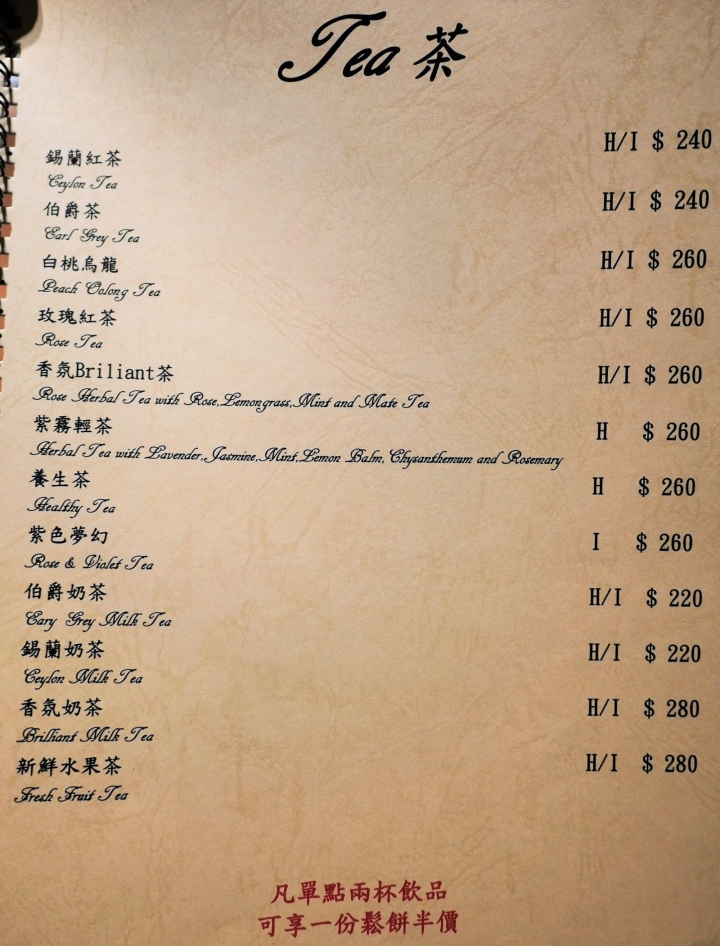 Tea 茶
錫蘭紅茶 H/I $ 240
Ceylon Tea
伯爵茶 H/I $ 240
Earl Grey Tea
白桃烏龍 H/I $ 260
Peach Oolong Tea
玫瑰紅茶 H/I $ 260
Rose Tea
香氛Briliant茶 H/I $ 260
Rose Herbal Tea with Rose,Lemongrass,Mint and Mate Tea
紫霧輕茶 H $ 260
Herbal Tea with Lavender,Jasmine,Mint,Lemon Balm, Chysanthemum and Rosemary
養生茶 H $ 260
Healthy Tea
紫色夢幻 I $ 260
Rose & Violet Tea
伯爵奶茶 H/I $ 220
Eary Grey Milk Tea
錫蘭奶茶 H/I $ 220
Ceylon Milk Tea
香氛奶茶 H/I $ 280
Brilliant Milk Tea
新鮮水果茶 H/I $ 280
Fresh Fruit Tea
凡單點兩杯飲品
可享一份鬆餅半價